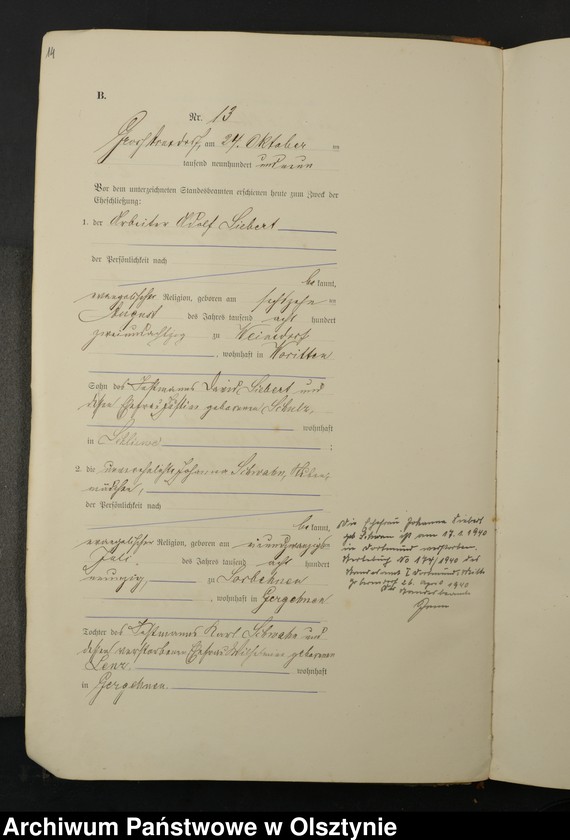 14
B.
Nr. 13
am 24. Oktober
tausend neunhundert und neun
Vor dem unterzeichneten Standesbeamten erschienen heute zum Zweck der
Eheschließung:
1. der Arbeiter Adolf Siebert
der Persönlichkeit nach
be kannt,
evangelischer Religion, geboren am sechszehn
August des Jahres tausend acht hundert
zweiundachtzig zu Weinsdorf
, wohnhaft in Koritten
Sohn des Instmanns David Siebert und
dessen Ehefrau Justine geborenen Schulz,
wohnhaft
in
;
2. die unverehelichte Johanna Schwahn,
mädchen,
der Persönlichkeit nach
be kannt,
evangelischer Religion, geboren am
Juli des Jahres tausend acht hundert
neunzig, zu Sorbehnen
, wohnhaft in Gergehnen
Tochter des Instmanns Karl Schwahn und
dessen verstorbenen Ehefrau Wilhelmine geborenen
Lenz wohnhaft
in Gergehnen.
Die Ehefrau Johanna Siebert
geb. Schwan ist am 17.1.1940
in Dortmund verstorben.
No 174/1940 des
Standesamt I Dortmund.
26. April 1940
Der Standesbeamte
Archiwum Państwowe w Olsztynie